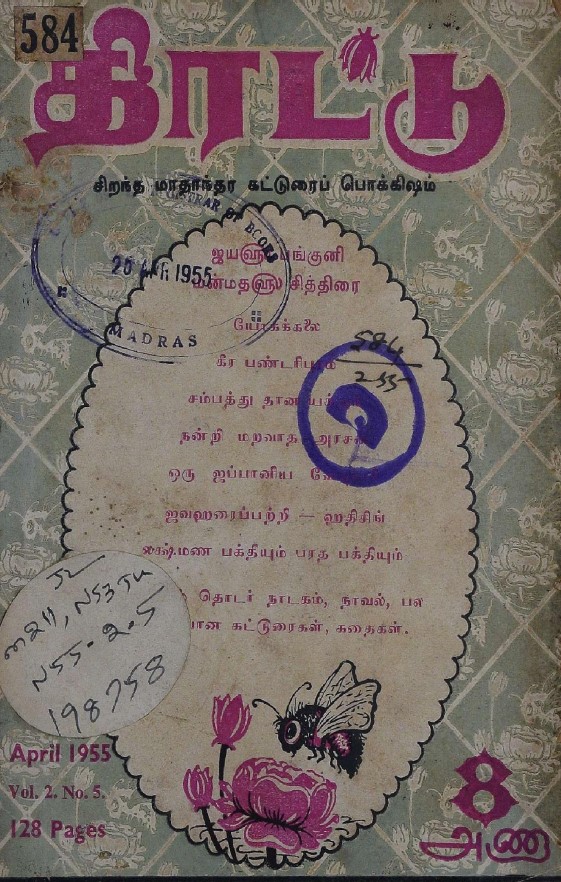 584
திரட்டு
சிறந்த மாதாந்தர கட்டுரைப் பொக்கிஷம்
REGISTRAR OF BOOKS
1955
MADRAS
ஜயஸ்ரீ பங்குனி
மன்மதஸ்ரீ சித்திரை
யோகக்கலை
கீர பண்டரிபுரம்
சம்பத்து
நன்றி மறவாத அரசன்
ஒரு ஜப்பானிய
ஜவஹரைப்பற்றி — ஹதிசிங்
லக்ஷ்மண பக்தியும் பரத பக்தியும்
தொடர் நாடகம், நாவல், பல
கட்டுரைகள், கதைகள்.
584
255
N55-2-5
198758
April 1955
Vol. 2. No. 5.
128 Pages
8
அணா